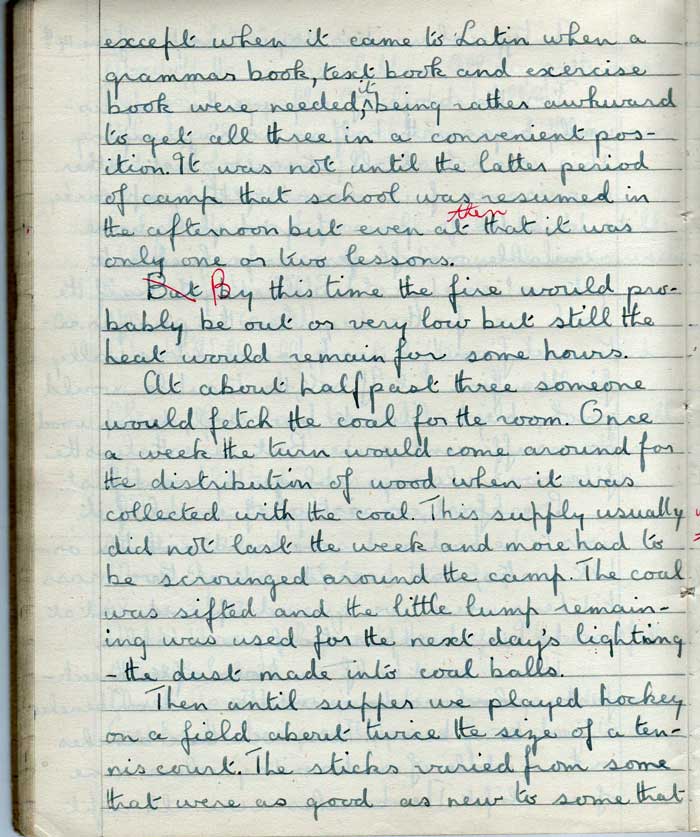 except when it came to Latin when a
grammar book, text book and exercise
it
book were needed, being rather awkward
to get all three in a convenient pos-
ition. It was not until the latter period
of camp that school was resumed in
then
the afternoon but even at that it was
only one or two lessons.
But By this time the fire would pro-
bably be out or very low but still the
heat would remain for some hours.
At about half past three someone
would fetch the coal for the room. Once
a week the turn would come around for
the distribution of wood when it was
collected with the coal. This supply usually
did not last the week and more had to
be scrounged around the camp. The coal
was sifted and the little lump remain-
ing was used for the next day's lighting
- the dust made into coal balls.
Then until supper we played hockey
on a field about twice the size of a ten-
nis court. The sticks varied from some
that were as good as new to some that